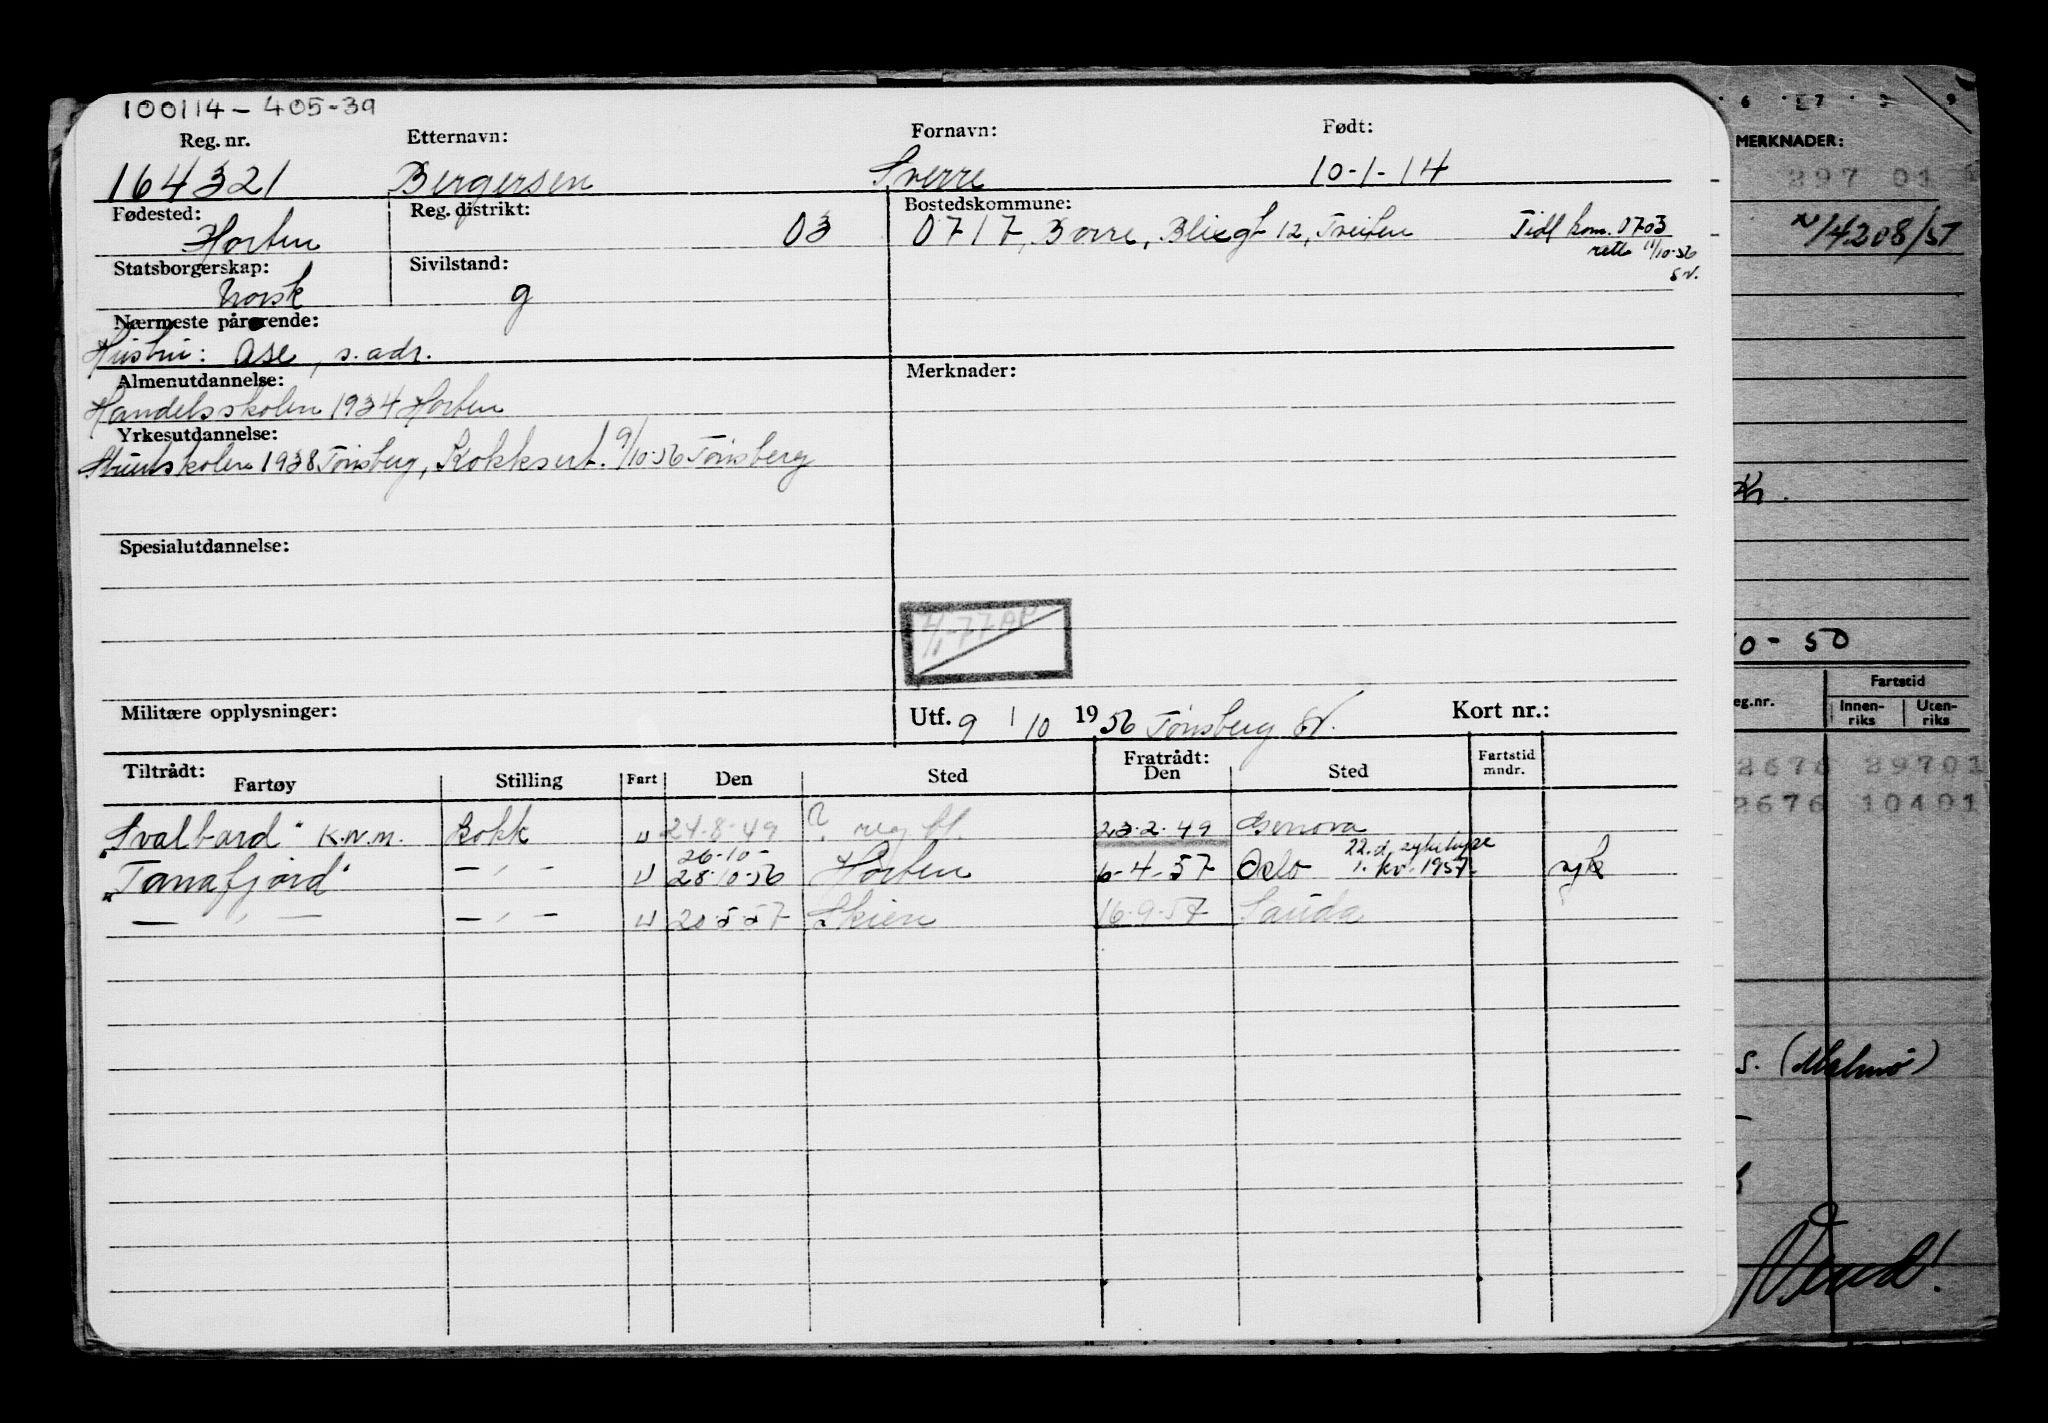 100114-405-39
Reg. nr. Etternavn: Fornavn: Født:
164321 Bergersen Sverre 10-1-14
Fødested: Reg. distrikt: Bostedskommune:
Horten 03 0717, Borre, Blixgt 12, Tveiten Tidl kom. 0703
rett 11/10-56
SV.
Statsborgerskap: Sivilstand:
Norsk g
Nærmeste pårørende:
Hustru: Åse, s. adr.
Almenutdannelse: Merknader:
Handelsskolen 1934 Horten
Yrkesutdannelse:
Stuertskolen 1938 Tønsberg, Kokksert. 9/10-56 Tønsberg
Spesialutdannelse:
Militære opplysninger: Utf. 9 / 10 1956 Tønsberg SV. Kort nr.:
Tiltrådt: Fratrådt: Fartstid
Fartøy Stilling Fart Den Sted Den Sted mndr.
Svalbard" K.N.M. Kokk U 24-8-49 ? reg bl. 23-2-49 Genova
26-10- 22.d. sykehyre
"Tanafjord" -"- U 28-10-56 Horten 6-4-57 Oslo 1. kv. 1957 syk
-"- -"- U 20-5-57 Skien 16-9-57 Sauda
6 7 9
MERKNADER:
297 01
14208/51
Kr.
0-50
eg.nr. Fartstid
Innen-riks Uten-riks
2676 29701
2676 10401
s. (Malmö)
Vend!